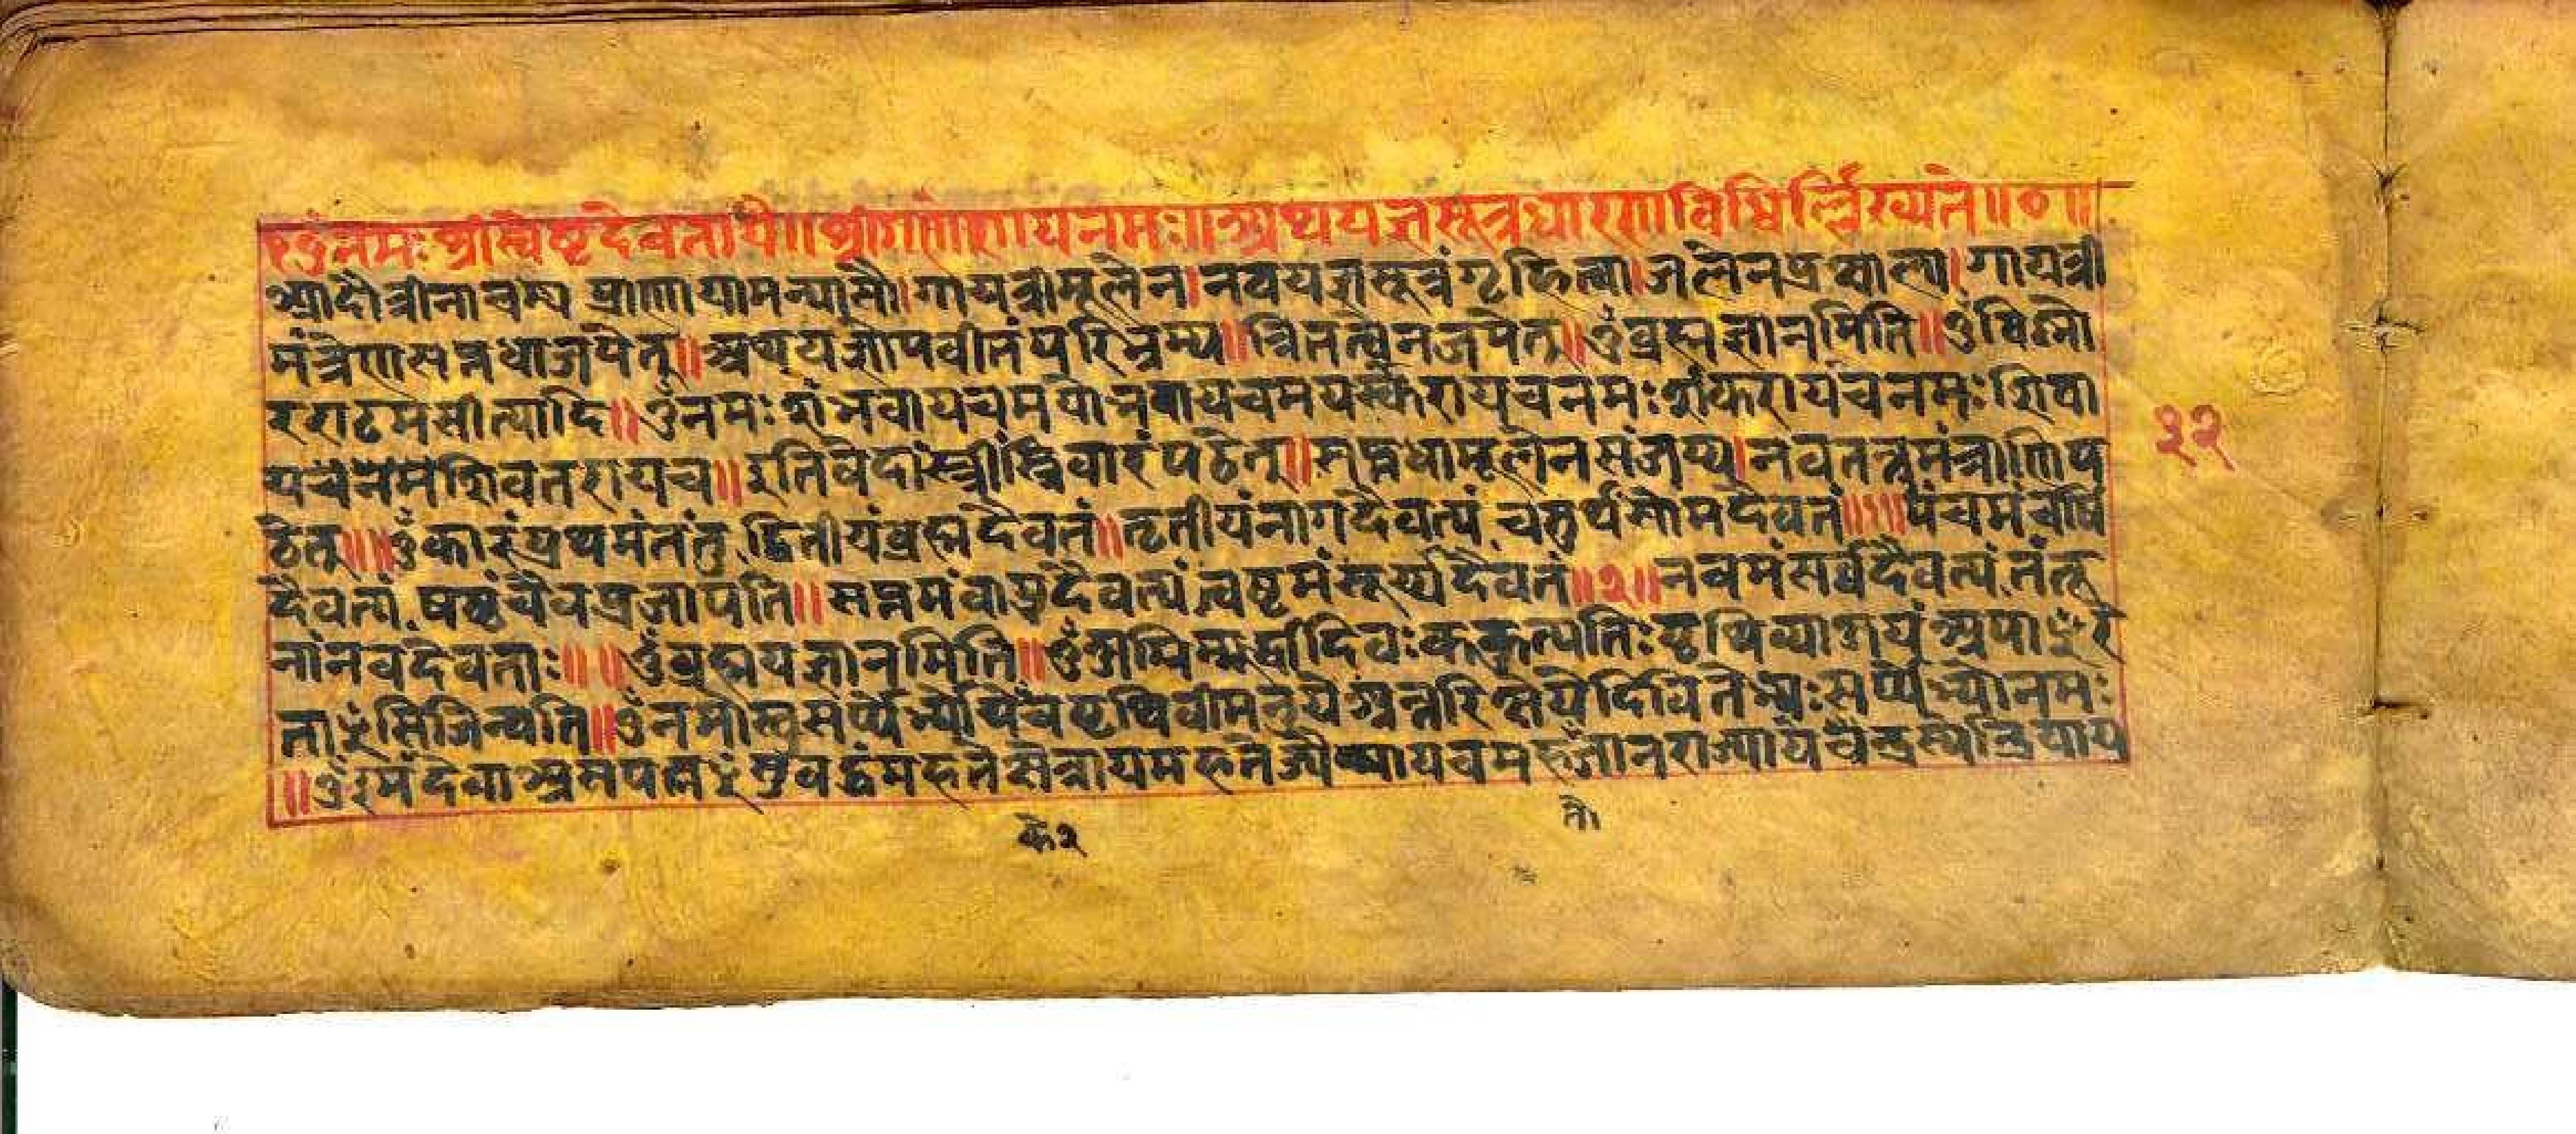 १ॐनमःश्रीस्वेष्टदेवतायै॥श्रीगणेशायनमः॥अथयज्ञसूत्रधारणविधिर्ल्लिख्यते॥०॥
आदौत्रीनाचम्य प्राणायामन्यासौ।गायत्रीमूलेन।नवयज्ञसूत्रंगृहित्वा।जलेनप्रक्षाल्य।गायत्री
मंत्रेणसप्तधाजपेत्॥अथयज्ञोपवीतंपरिक्रम्य॥त्रितत्वेनजपेत्॥ॐब्रह्मज्ञानमिति॥ॐविष्णो
रराटमसीत्यादि॥ॐनमःशंभवायचमयोभवायचमयस्करायचनमःशंकरायचनमःशिवा
यचनमशिवतरायच॥इतिवेदांस्त्रींस्त्रिवारंपठेत्॥सप्तधामूलेनसंजप्य।नवतन्तुमंत्राणिप
ठेत्॥॥ॐकारंप्रथमंतंतु द्वितीयंब्रह्मदेवतं॥तृतीयंनागदैवत्यं चतुर्थंसोमदेवतं॥१॥पंचमंचाग्नि
दैवत्यं षष्ठंचैवप्रजापति॥सप्तमंवायुदैवत्यं त्वष्टमंसूर्य्यदैवतं॥२॥नवमंसर्वदैवत्यं तंतू
नांनवदेवताः॥॥ॐब्रह्मयज्ञानमिति॥ॐअग्निम्मूर्द्धादिवःककुत्पतिःपृथिव्याअयं अपाꣳरे
ताꣳसिजिन्वति॥ॐनमोस्तुसर्प्पेभ्योयेकेचपृथिवीमनुयेअन्तरिक्षेयेदिवितेभ्यःसर्प्पेभ्योनमः
॥ॐइमंदेवाअसपत्नꣳसुवद्ध्वंमहतेक्षत्रायमहतेज्यैष्ठ्यायचमहजानराज्यायेन्द्रस्येन्द्रियाय
के२
ते।
३२